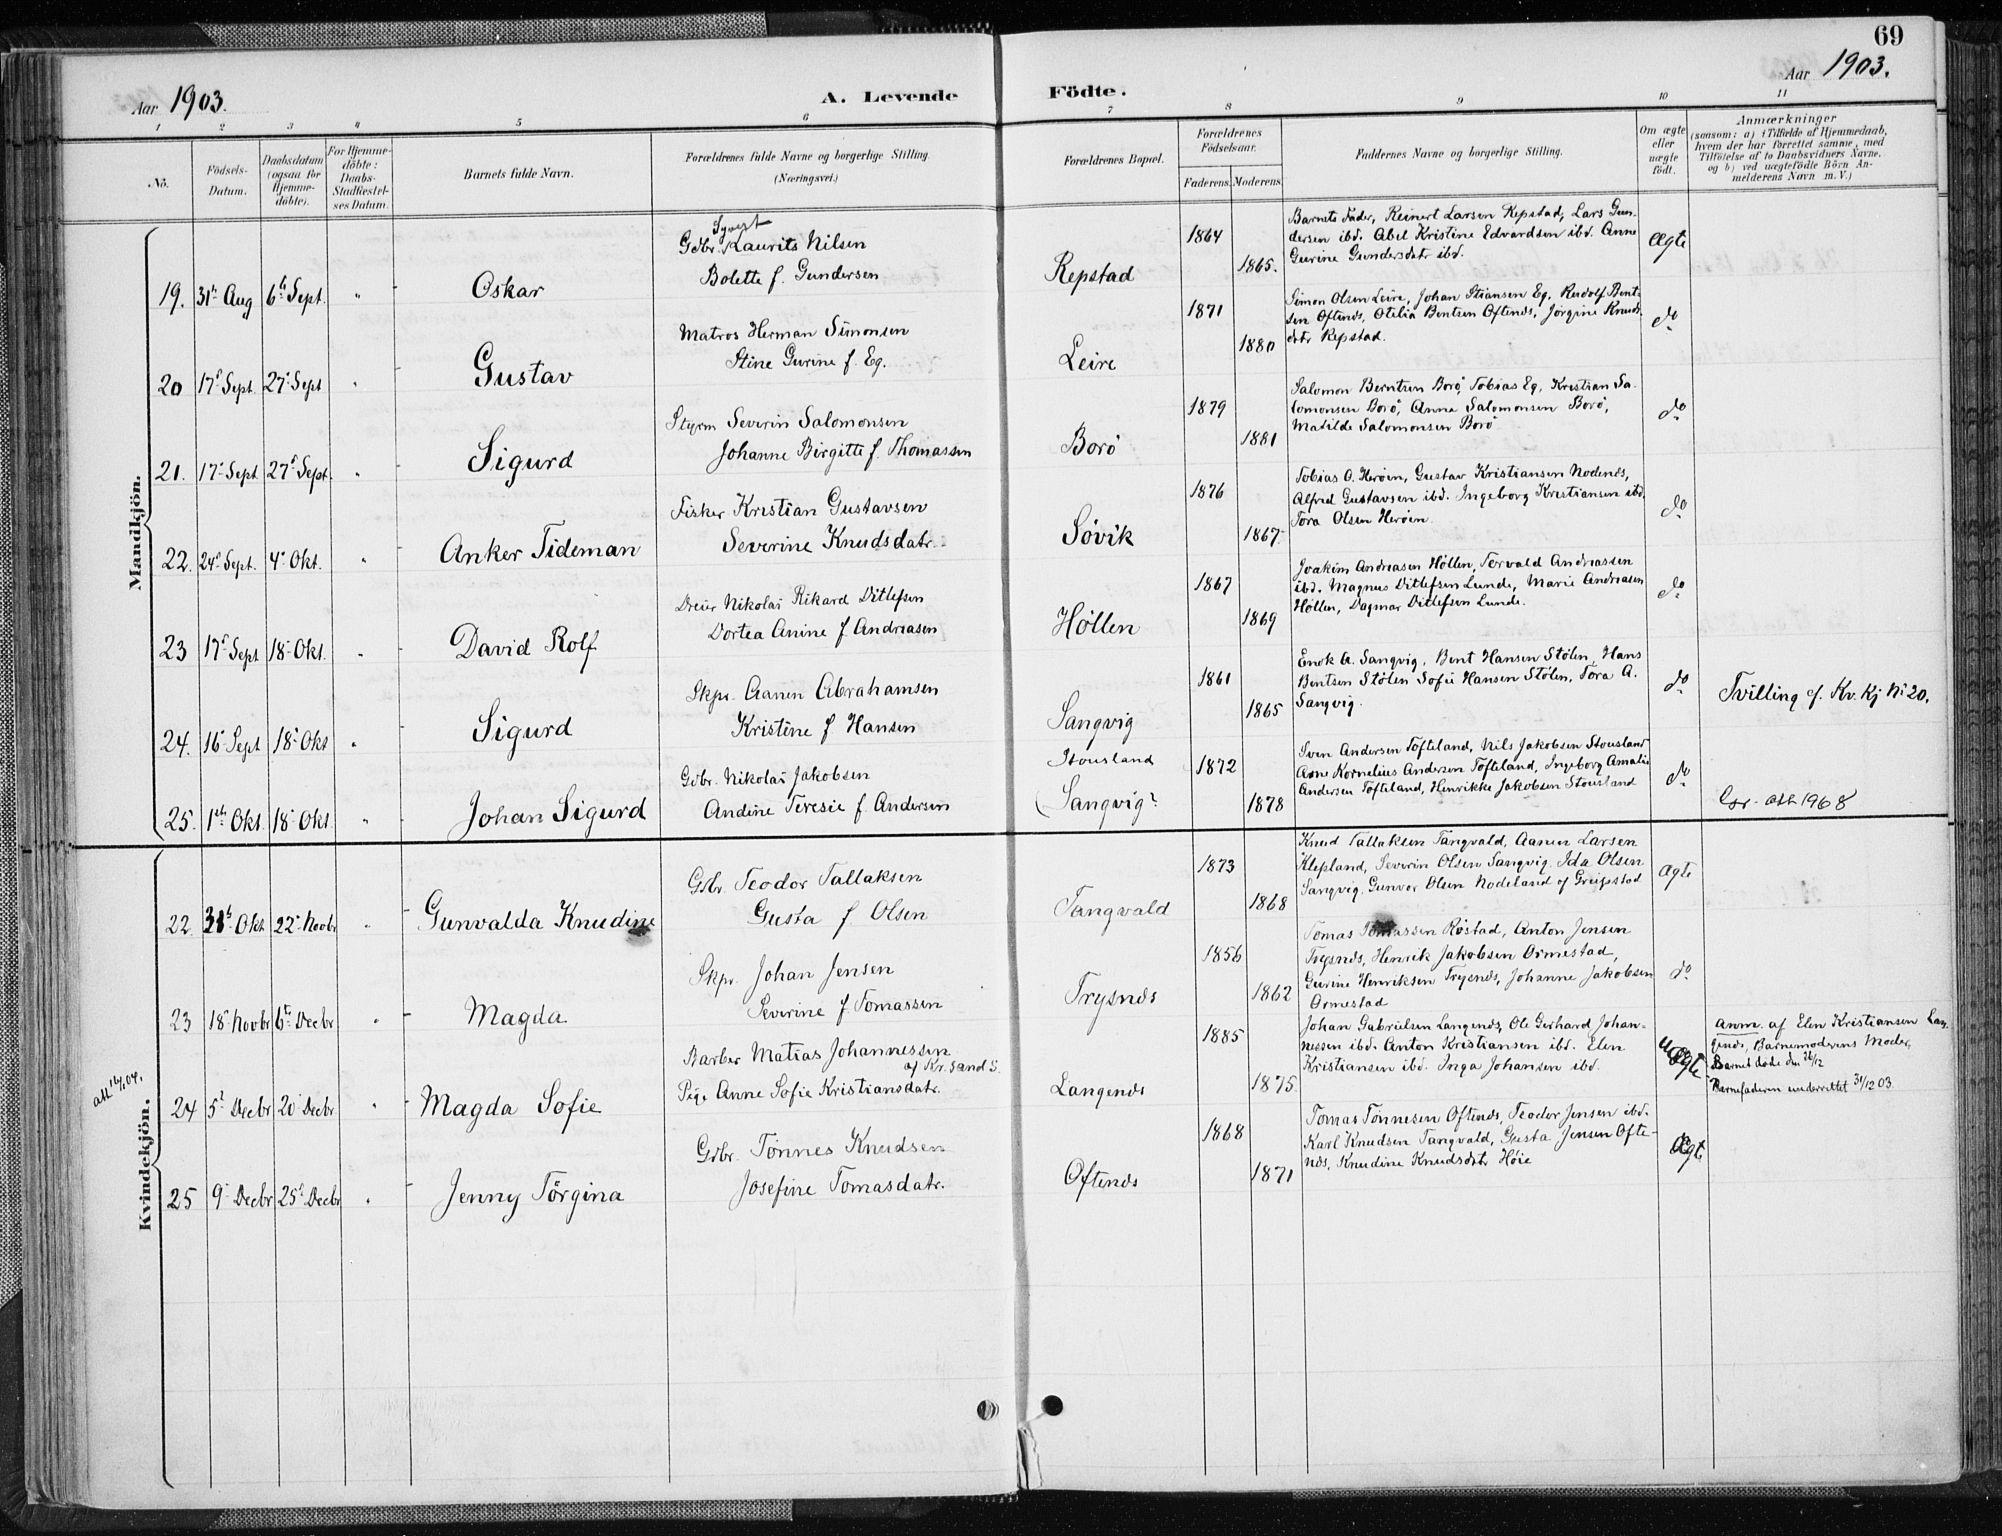 69
Aar 1903.
A. Levende Födte.
Aar 1903.
1 2 3 4 5 6 7 8 9 10 11
No.
Födsels-Datum.
Daabsdatum (ogsaa for Hjemme-döbte).
For Hjemme-döbte: Daabs-Stadfæstel-ses Datum.
Barnets fulde Navn.
Forældrenes fulde Navne og borgerlige Stilling. (Næringsvei.)
Forældrenes Bopæl.
Forældrenes Födselsaar.
Faderens. Moderens.
Faddernes Navne og borgerlige Stilling.
Om ægte eller uægte födt.
Anmærkninger
(saasom: a) i Tilfælde af Hjemmedaab,
hvem der har forrettet samme, med
Tilföielse af to Daabsvidners Navne,
og b) ved uægtefödte Börn An-
melderens Navn m. V.)
Mandkjön.
19. 31te Aug 6te Sept. " Oskar
Syvert
Gdbr. Laurits Nilsen
Bolette f. Gundersen
Repstad
1864
1865.
Barnets Fader, Reinert Larsen Repstad, Lars Gun-
dersen ibd. Abel Kristine Edvardsen ibd. Anne
Gurine Gundersdtr ibd.
Ægte
20 17de Sept. 27de Sept " Gustav
Matros Herman Simonsen
Stine Gurine f. Eg.
Leire
1871
1880
Simon Olsen Leire, Johan Stiansen Eg, Rudolf Bent-
sen Oftenæs, Otilia Bentsen Oftenæs, Jörgine Knuds-
dtr Repstad.
do
21. 17de Sept 27de Sept. " Sigurd
Styrm Severin Salomonsen
Johanne Birgitte f. Thomassen
Borö
1879
1881
Salomon Berntsen Borö, Tobias Eg, Kristian Sa-
lomonsen Borö, Anna Salomonsen Borö,
Matilde Salomonsen Borö
do
22. 24de Sept. 4de Okt. " Anker Tideman
Fisker Kristian Gustavsen
Severine Knudsdatr.
Sövik
1876
1867.
Tobias O. Heröen, Gustav Kristiansen Nodenæs,
Alfred Gustavsen ibd. Ingeborg Kristiansen ibd.
Tora Olsen Heröen
do
23 17de Sept 18de Okt. " David Rolf
Dreier Nikolai Rikard Ditlefsen
Dortea Anine f Andreasen
Høllen
1867
1869
Joakim Andreasen Høllen, Torvald Andreassen
ibd. Magnus Ditlefsen Lunde, Marie Andreasen
Høllen, Dagmar Ditlefsen Lunde.
do
24. 16de Sept 18de Okt " Sigurd
Skpr. Aanen Abrahamsen
Kristine f Hansen
Sangvig
1861
1865
Enok A. Sangvig, Bent Hansen Stølen, Hans
Bentsen Stølen Sofie Hansen Stølen, Tora A.
Sangvig.
do
Tvilling cf. Kv. Kj No 20.
25. 1ste Okt. 18de Okt " Johan Sigurd
Gdbr. Nikolai Jakobsen
Andine Teresie f Andersen
Stousland
(Sangvig?
1872
1878
Sven Andersen Tofteland, Nils Jakobsen Stousland
Arne Kornelius Andersen Tofteland, Ingeborg Amalie
Andersen Tofteland, Henrikke Jakobsen Stousland
do
att 1968
Kvindekjön.
22. 31te Okt 22de Novbr " Gunvalda Knudine
Gdbr. Teodor Tallaksen
Gusta f Olsen
Tangvald
1873
1868
Knud Tallaksen Tangvald, Aanen Larsen
Klepland, Severin Olsen Sangvig, Ida Olsen
Sangvig, Gunvor Olsen Nodeland af Greipstad
Ægte
23 18de Novbr 6te Decbr " Magda
Skpr. Johan Jensen
Severine f Tomassen
Trysnes
1856
1862
Tomas Tomassen Røstad, Anton Jensen
Trysnes, Henrik Jakobsen Ormestad,
Gurine Henriksen Trysnes, Johanne Jakobsen
Ormestad
do
att 16/1 04.
24 5te Decbr 20de Decbr " Magda Sofie
Barber Matias Johannessen
af Kr.sand S.
Pige Anne Sofie Kristiansdatr.
Langenes
1885
1875.
Johan Gabrielsen Langenes, Ole Gerhard Johan-
nessen ibd. Anton Kristiansen ibd. Elen
Kristiansen ibd. Inga Johansen ibd.
uægte
Anm. af Elen Kristiansen Lan-
genes, Barnemoderens Moder,
Barnet døde den 26/12
Barnefaderen underrettet 31/12 03.
25 9de Decbr 25de Decbr " Jenny Törgina
Gdbr. Tönnes Knudsen
Josefine Tomasdatr.
Oftenes
1868
1871
Tomas Tönnesen Oftenes, Teodor Jensen ibd.
Karl Knudsen Tangvald, Gusta Jensen Ofte-
nes, Knudine Knudsdtr Høie
Ægte